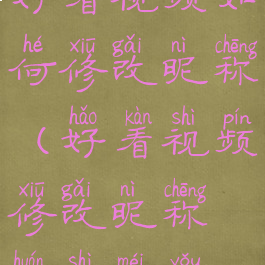 好看视频如
hé xiū gǎi nì chēng
何修改昵称
hǎo kàn shì pín
（好看视频
xiū gǎi nì chēng
修改昵称
huán shì méi yǒu